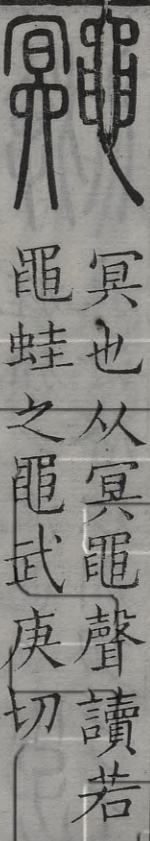 鼆
冥也从冥黽聲讀若
黽蛙之黽武庚切